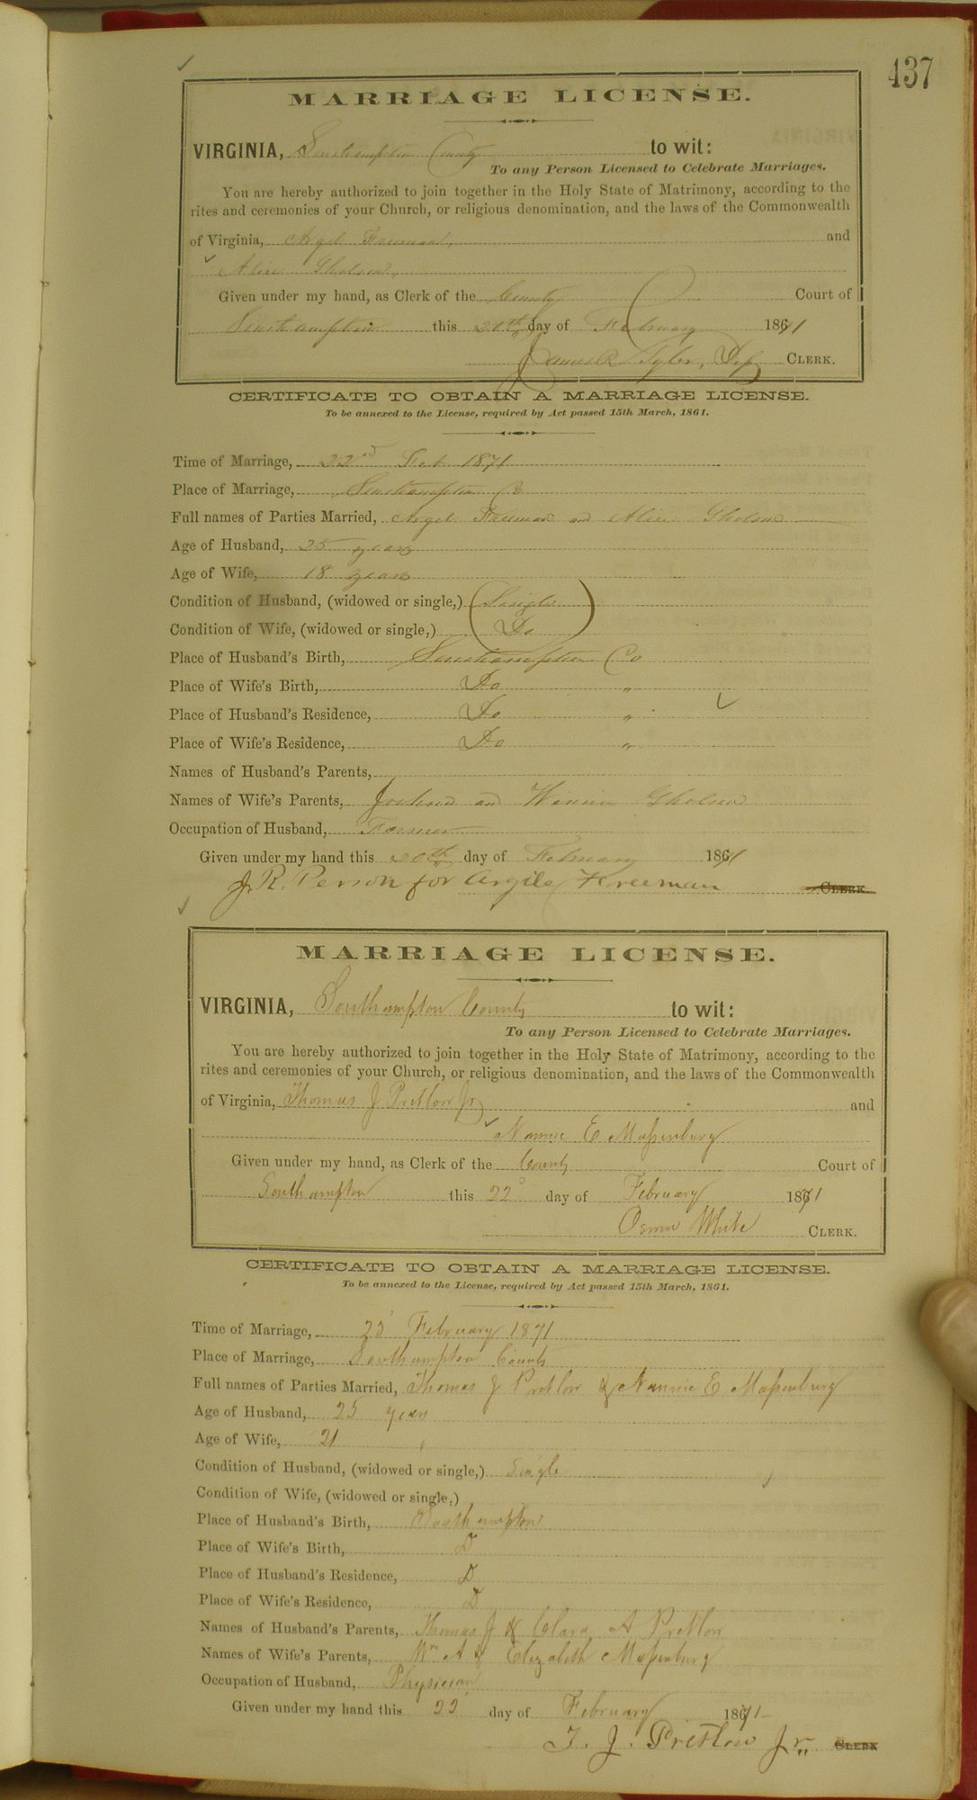 437
MARRIAGE LICENSE.
VIRGINIA, Southampton County to wit:
To any Person Licensed to Celebrate Marriages.
You are hereby authorized to join together in the Holy State of Matrimony, according to the
rites and ceremonies of your Church, or religious denomination, and the laws of the Commonwealth
of Virginia, Argel Freeman, and
Alice Gholson,
Given under my hand, as Clerk of the County Court of
Southampton this 20th day of February 1871
Tyler, Dep CLERK.
CERTIFICATE TO OBTAIN A MARRIAGE LICENSE.
To be annexed to the License, required by Act passed 15th March, 1861.
Time of Marriage, 22nd Feb 1871
Place of Marriage, Southampton Co
Full names of Parties Married, Argel Freeman and Alice Gholson
Age of Husband, 25 years
Age of Wife, 18 years
Condition of Husband, (widowed or single,) Single
Condition of Wife, (widowed or single,) Do
Place of Husband's Birth, Southampton Co
Place of Wife's Birth, Do "
Place of Husband's Residence, Do "
Place of Wife's Residence, Do "
Names of Husband's Parents,
Names of Wife's Parents, and Gholson
Occupation of Husband, Farmer
Given under my hand this 20th day of February 1871
J. R. Person for Argile Freeman CLERK
MARRIAGE LICENSE.
VIRGINIA, Southampton County to wit:
To any Person Licensed to Celebrate Marriages.
You are hereby authorized to join together in the Holy State of Matrimony, according to the
rites and ceremonies of your Church, or religious denomination, and the laws of the Commonwealth
of Virginia, Thomas J Pretlow Jr and
Nannie E Massenburg
Given under my hand, as Clerk of the County Court of
Southampton this 22d day of February 1871
White CLERK.
CERTIFICATE TO OBTAIN A MARRIAGE LICENSE.
To be annexed to the License, required by Act passed 15th March, 1861.
Time of Marriage, February 1871
Place of Marriage, Southampton County
Full names of Parties Married, Thomas J Pretlow & Nannie E Massenburg
Age of Husband, 25 years
Age of Wife, 21 "
Condition of Husband, (widowed or single,) Single
Condition of Wife, (widowed or single,)
Place of Husband's Birth, Southampton
Place of Wife's Birth, D
Place of Husband's Residence, D
Place of Wife's Residence, D
Names of Husband's Parents, Thomas J & Clara A Pretlow
Names of Wife's Parents, Wm A & Elizabeth Massenburg
Occupation of Husband, Physician
Given under my hand this 22 day of February 1871
T. J. Pretlow Jr. CLERK